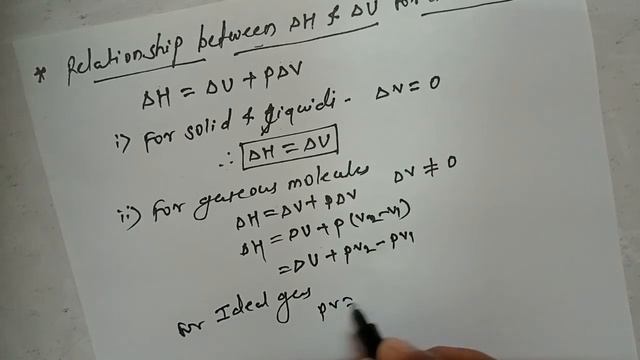 * Relationship between ΔH & ΔU for
ΔH = ΔU + PΔV
i) For solid & liquid:- ΔV = 0
∴ ΔH = ΔU
ii) For gaseous molecules ΔV ≠ 0
ΔH = ΔU + PΔV
ΔH = ΔU + P(V₂-V₁)
= ΔU + PV₂ - PV₁
For Ideal gas PV=